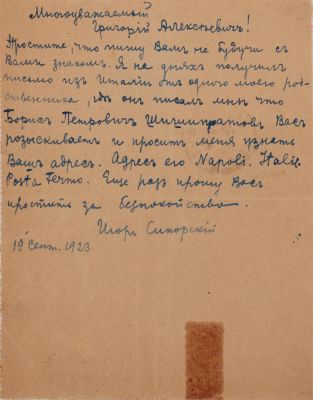 Многоуважаемый
Григорій Алексѣевичъ!
Простите, что пишу Вамъ не будучи съ
Вами знакомъ. Я на дняхъ получилъ
письмо изъ Италіи отъ одного моего род-
ственника, гдѣ онъ писалъ мнѣ что
Борисъ Петровичъ Васъ
розыскиваетъ и проситъ меня узнать
Вашъ адресъ. Адресъ его Napoli. Italie.
Posta Fermo. Еще разъ прошу Васъ
простить за безпокойство.
Игорь Сикорскій
19 сент. 1923